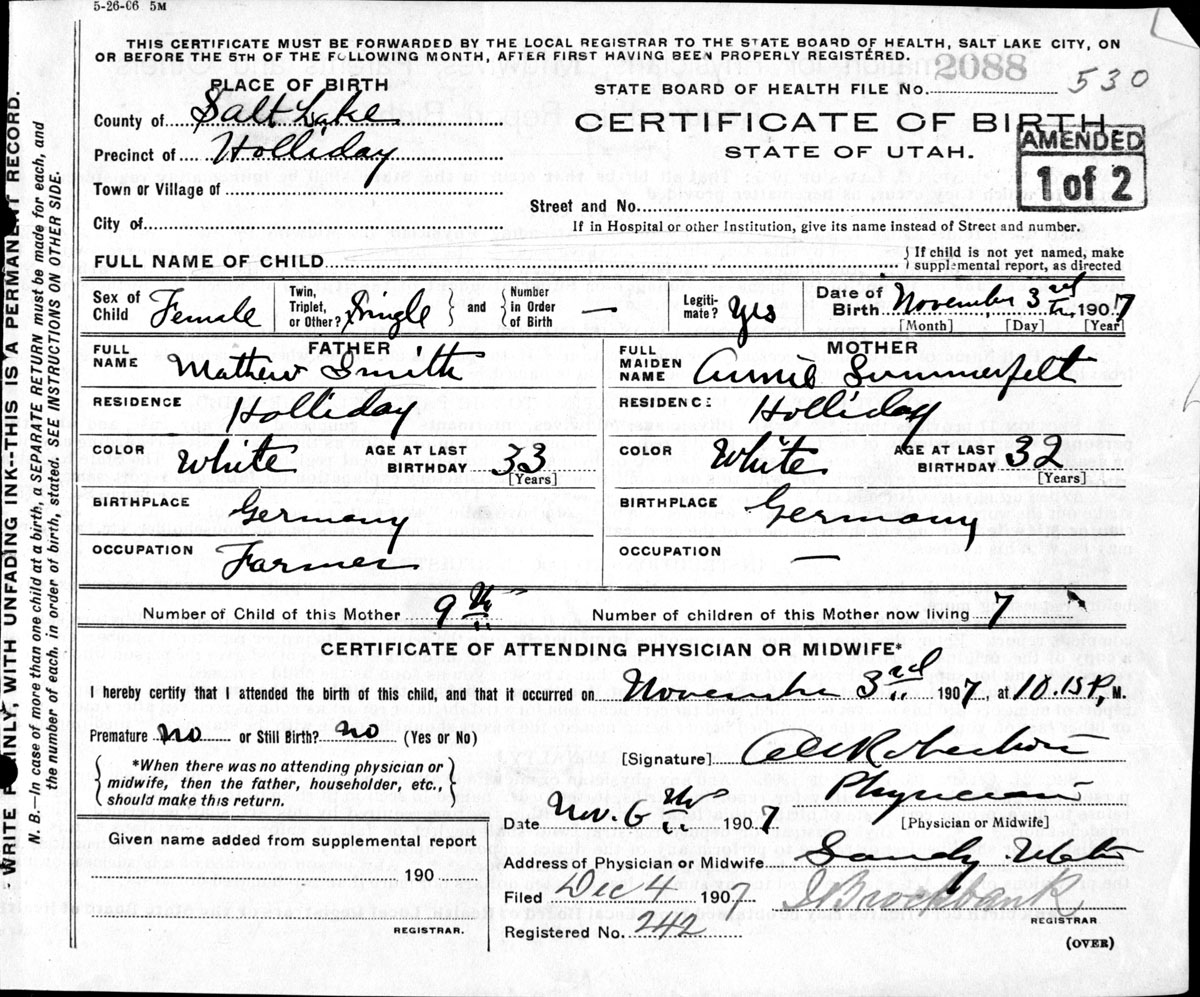 5-26-06 5M
THIS CERTIFICATE MUST BE FORWARDED BY THE LOCAL REGISTRAR TO THE STATE BOARD OF HEALTH, SALT LAKE CITY, ON
OR BEFORE THE 5TH OF THE FOLLOWING MONTH, AFTER FIRST HAVING BEEN PROPERLY REGISTERED.
2088
530
PLACE OF BIRTH
STATE BOARD OF HEALTH FILE No.
County of Salt Lake
CERTIFICATE OF BIRTH
Precinct of Holliday
STATE OF UTAH.
AMENDED
1 of 2
Town or Village of
Street and No.
City of
If in Hospital or other Institution, give its name instead of Street and number.
FULL NAME OF CHILD
If child is not yet named, make
supplemental report, as directed
Sex of Child Female
Twin, Triplet, or Other? Single
and
Number in Order of Birth —
Legiti-mate? Yes
Date of Birth November 3rd, 1907
[Month] [Day] [Year]
FATHER
MOTHER
FULL NAME Mathew Smith
FULL MAIDEN NAME Annie Summerfelt
RESIDENCE Holliday
RESIDENCE Holliday
COLOR White AGE AT LAST BIRTHDAY 33 [Years]
COLOR White AGE AT LAST BIRTHDAY 32 [Years]
BIRTHPLACE Germany
BIRTHPLACE Germany
OCCUPATION Farmer
OCCUPATION —
Number of Child of this Mother 9th
Number of children of this Mother now living 7
CERTIFICATE OF ATTENDING PHYSICIAN OR MIDWIFE*
I hereby certify that I attended the birth of this child, and that it occurred on November 3rd 1907, at 10.15 P, M.
Premature no or Still Birth? no (Yes or No)
*When there was no attending physician or
midwife, then the father, householder, etc.,
should make this return.
[Signature] Robertson
Physician
[Physician or Midwife]
Date Nov. 6th 1907
Given name added from supplemental report
190
REGISTRAR.
Address of Physician or Midwife Sandy Utah
Filed Dec 4 1907
J Brockbank
REGISTRAR
Registered No. 242
(OVER)
WRITE PLAINLY, WITH UNFADING INK--THIS IS A PERMANENT RECORD.
N. B.—In case of more than one child at a birth, a SEPARATE RETURN must be made for each, and
the number of each, in order of birth, stated. SEE INSTRUCTIONS ON OTHER SIDE.